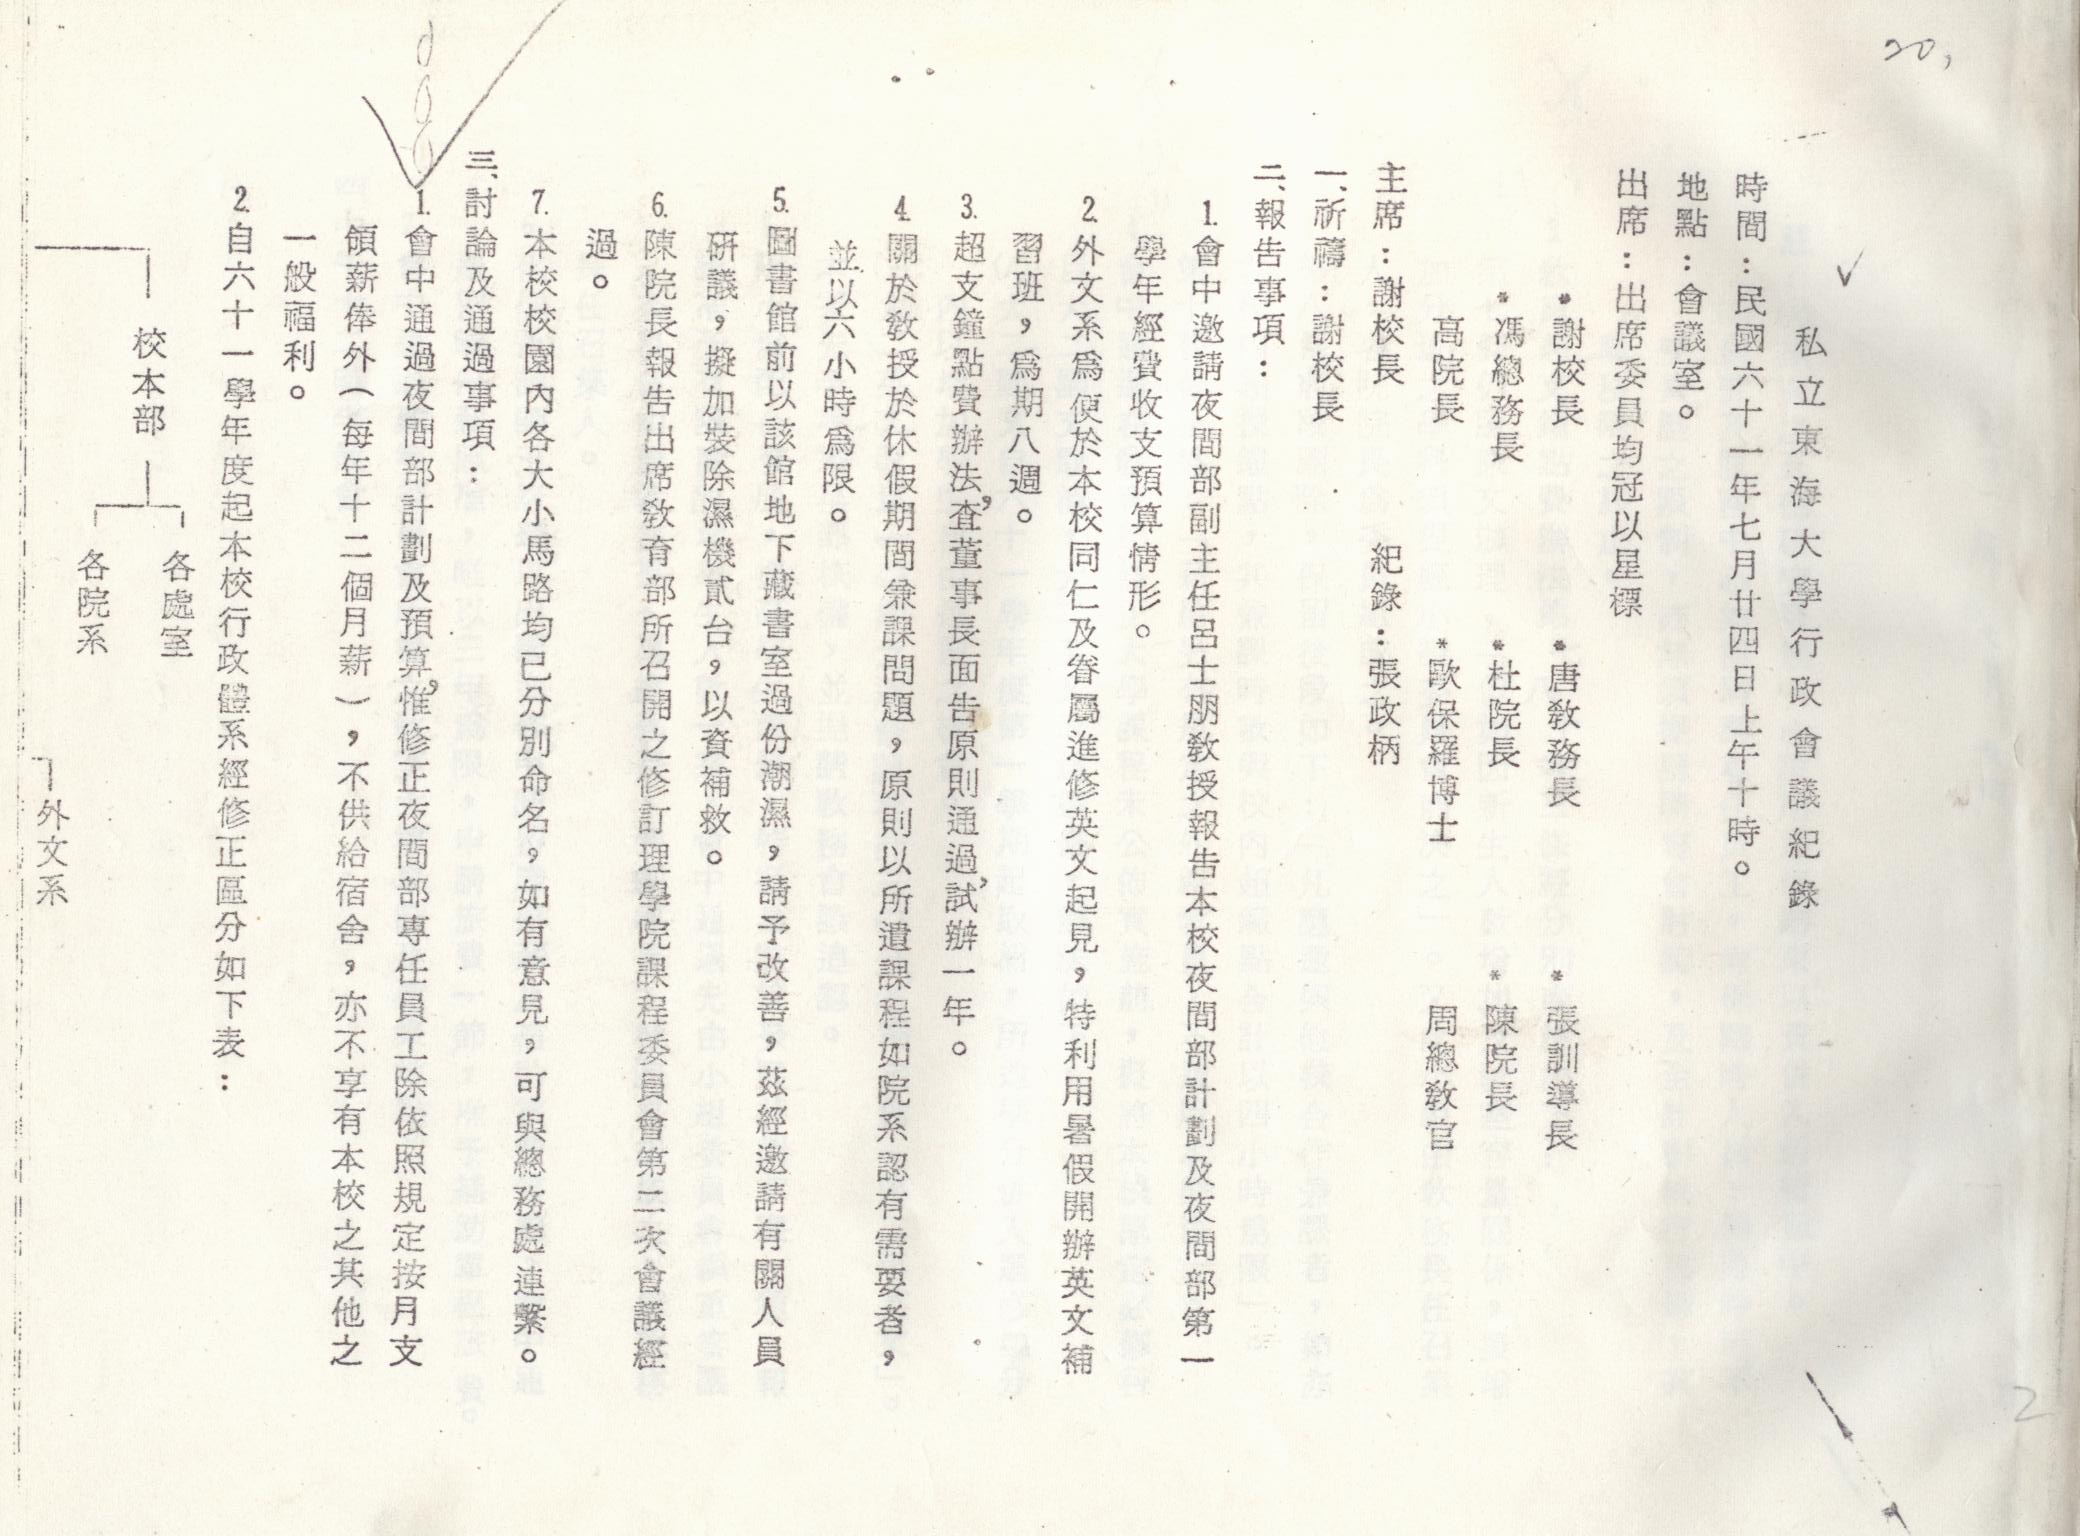 20,
私立東海大學行政會議紀錄
時間：民國六十一年七月廿四日上午十時。
地點：會議室。
出席：出席委員均冠以星標
*謝校長 *唐教務長 *張訓導長
*馮總務長 *杜院長 *陳院長
高院長 *歐保羅博士 周總教官
主席：謝校長 紀錄：張政柄
一、祈禱：謝校長
二、報告事項：
1.會中邀請夜間部副主任呂士朋教授報告本校夜間部計劃及夜間部第一
學年經費收支預算情形。
2.外文系爲便於本校同仁及眷屬進修英文起見，特利用暑假開辦英文補
習班，爲期八週。
3.超支鐘點費辦法，查董事長面告原則通過，試辦一年。
4.關於教授於休假期間兼課問題，原則以所遺課程如院系認有需要者，
並以六小時爲限。
5.圖書館前以該館地下藏書室過份潮濕，請予改善，茲經邀請有關人員
研議，擬加裝除濕機貳台，以資補救。
6.陳院長報告出席教育部所召開之修訂理學院課程委員會第二次會議經
過。
7.本校校園內各大小馬路均已分別命名，如有意見，可與總務處連繫。
三、討論及通過事項：
1.會中通過夜間部計劃及預算，惟修正夜間部專任員工除依照規定按月支
領薪俸外（每年十二個月薪），不供給宿舍，亦不享有本校之其他之
一般福利。
2.自六十一學年度起本校行政體系經修正區分如下表：
校本部
各處室
各院系
外文系
2